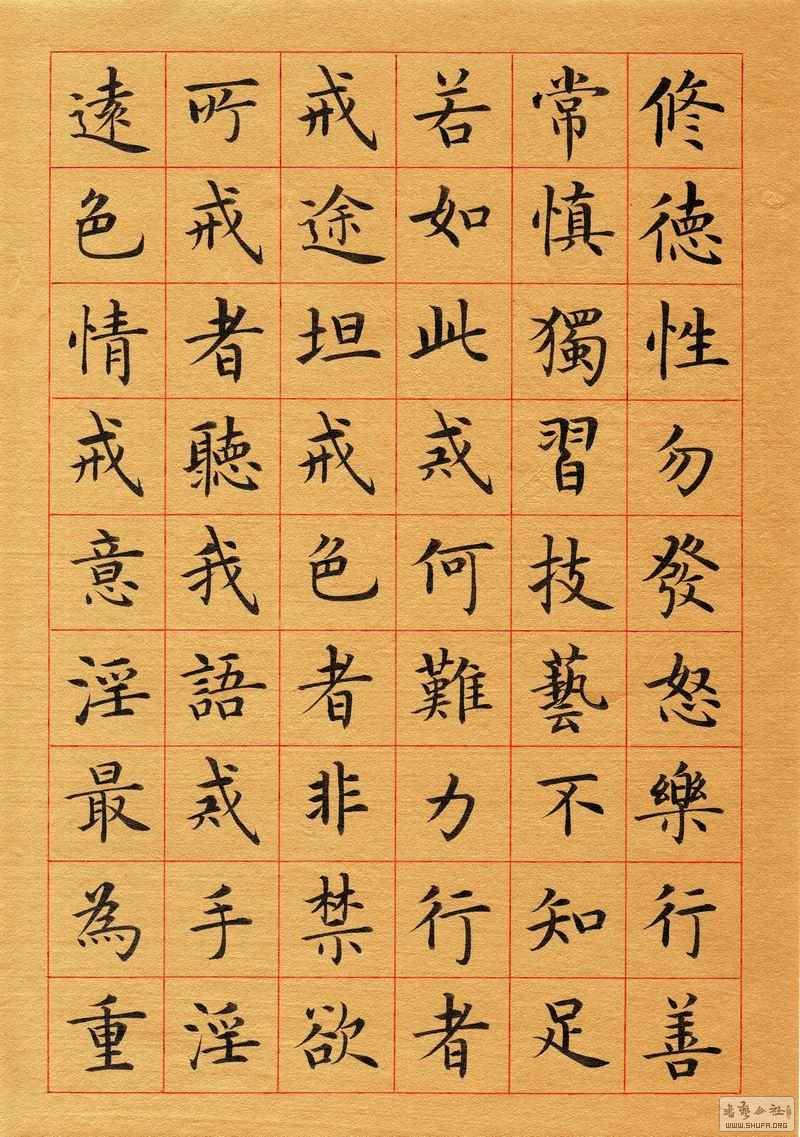 修德性勿發怒樂行善
常慎獨習技藝不知足
若如此戒何難力行者
戒途坦戒色者非禁欲
所戒者聽我語戒手淫
遠色情戒意淫最為重
書藝公社
WWW.SHUFA.ORG